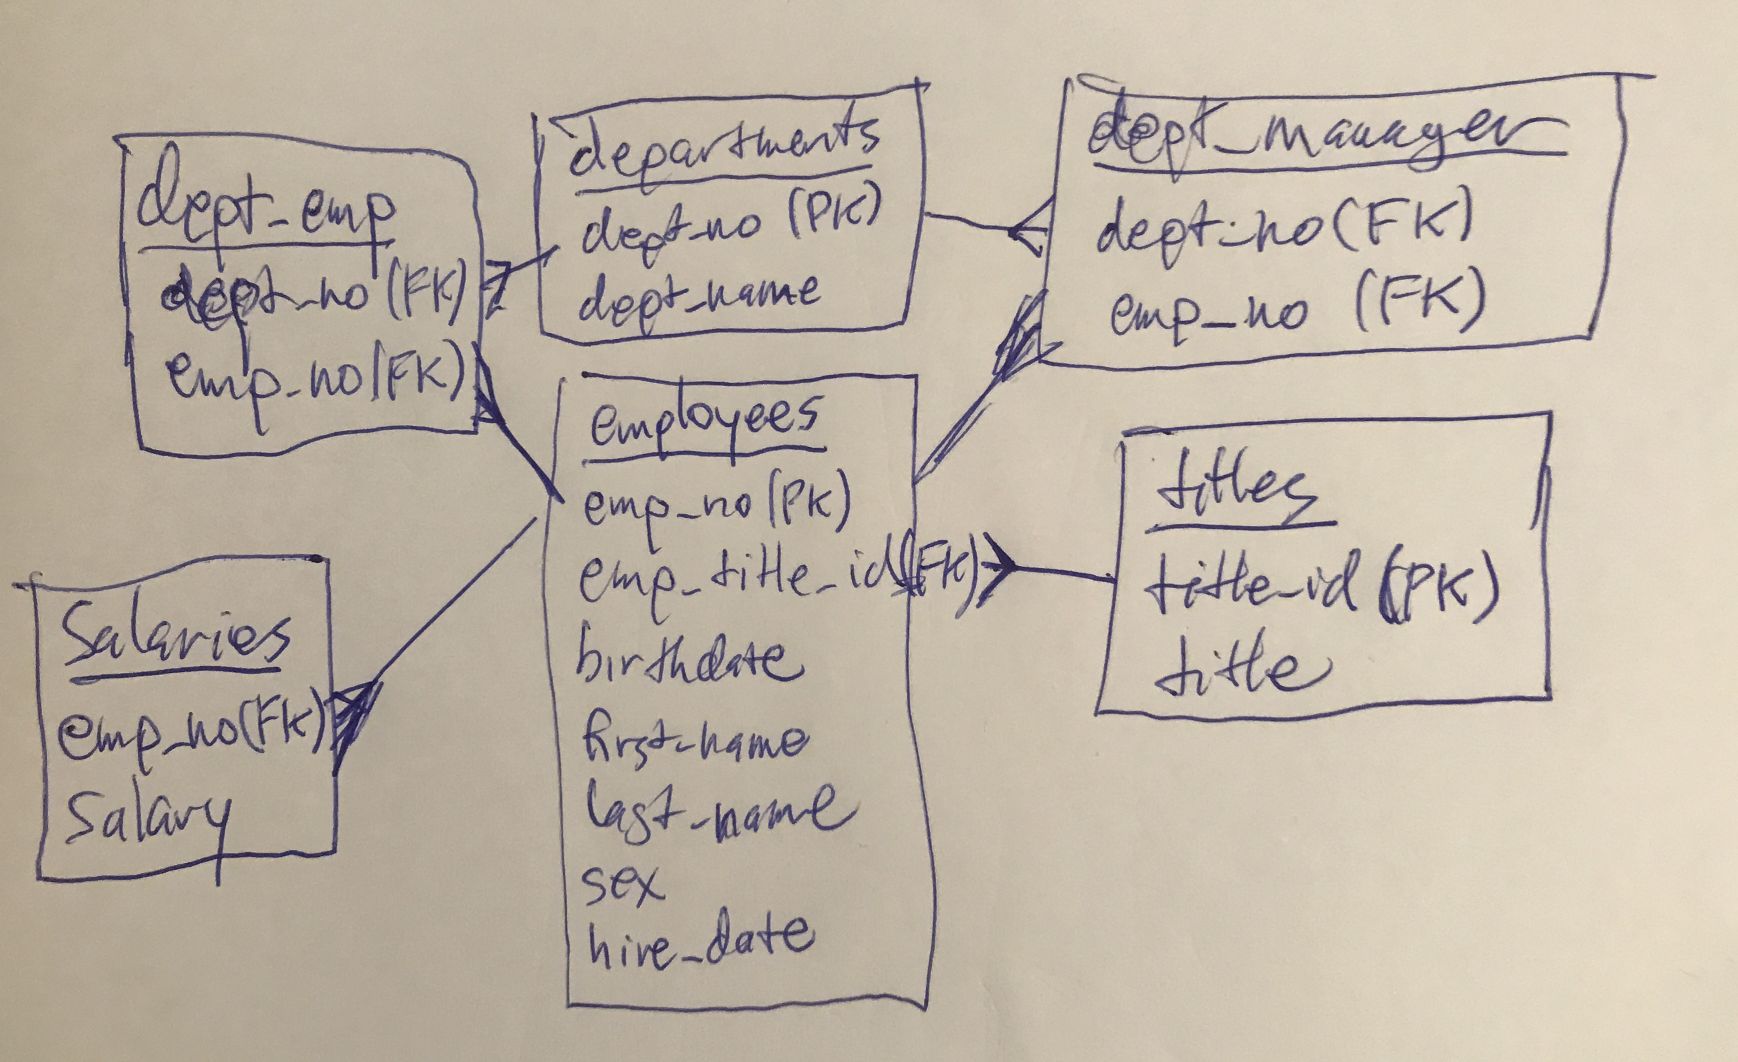 dept_emp
dept_no (FK)
emp_no (FK)
departments
dept_no (PK)
dept_name
dept_manager
dept_no (FK)
emp_no (FK)
employees
emp_no (PK)
emp_title_id (FK)
birthdate
first_name
last_name
sex
hire_date
titles
title_id (PK)
title
Salaries
emp_no (FK)
Salary